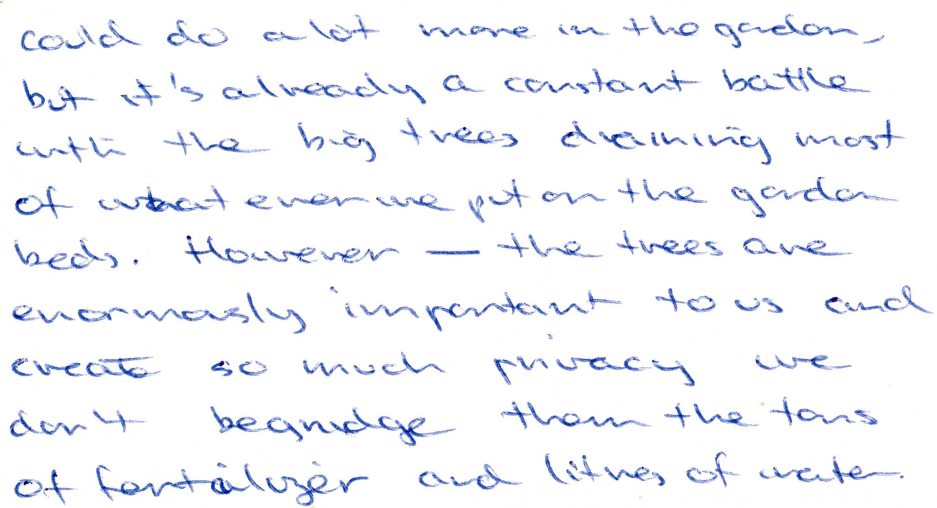 could do a lot more in the garden,
but it's already a constant battle
with the big trees draining most
of what ever we put on the garden
beds. However — the trees are
enormously important to us and
create so much privacy we
don't begrudge them the tons
of fertilizer and litres of water.